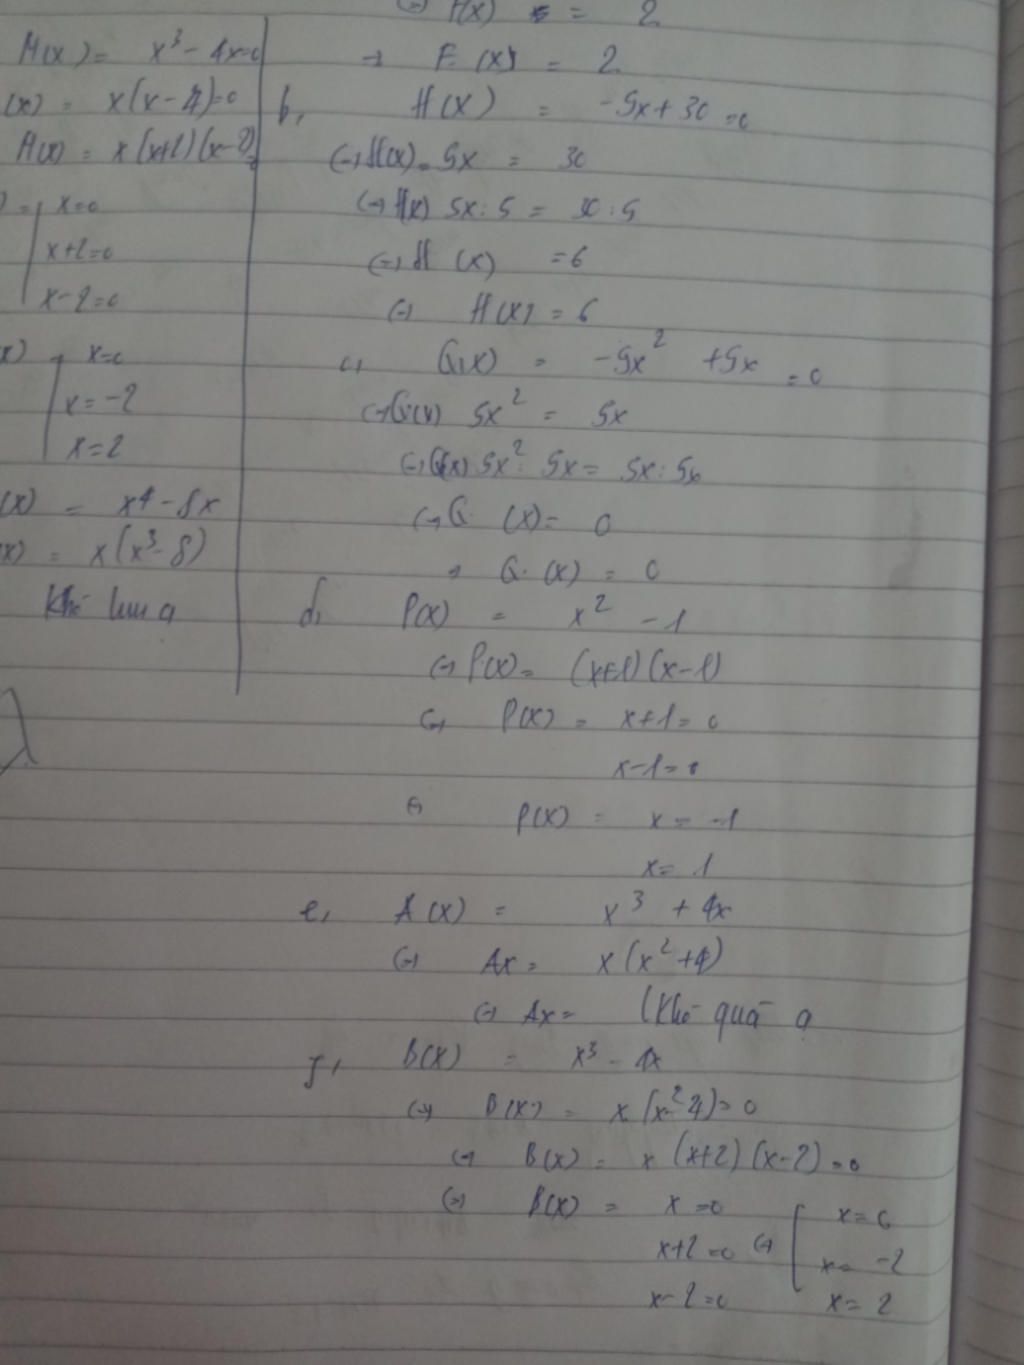 M(x) = x³ - 4x=0
(x) = x(x-4)=0
A(x) = x(x+2)(x-2)
x=0
x+2=0
x-2=0
x)
x=0
x=-2
x=2
(x) = x⁴-8x
x) = x(x³-8)
Khó
(=) F(x) = 2
→ F(x) = 2
b, H(x) = -5x+30=0
(=) H(x) = 5x = 30
(=) H(x) 5x:5 = 30:5
(=) H (x) =6
(=) H(x) = 6
c, G(x) = -5x² +5x =0
(=) G(x) 5x² = 5x
(=) G(x) 5x²: 5x = 5x:5x
(=) G (x)= 0
→ G (x) = 0
d, P(x) = x² -1
(=) P(x)= (x+1)(x-1)
(=) P(x) = x+1=0
x-1=0
(=) P(x) = x = -1
x= 1
e, A(x) = x³ + 4x
(=) Ax= x(x²+4)
(=) Ax= (Khó quá ạ
f, B(x) = x³ - 4x
(=) B(x) = x(x²-4)=0
(=) B(x) = x (x+2)(x-2)=0
(=) B(x) = x =0
x+2=0 (=)
x-2=0
x=0
x= -2
x= 2